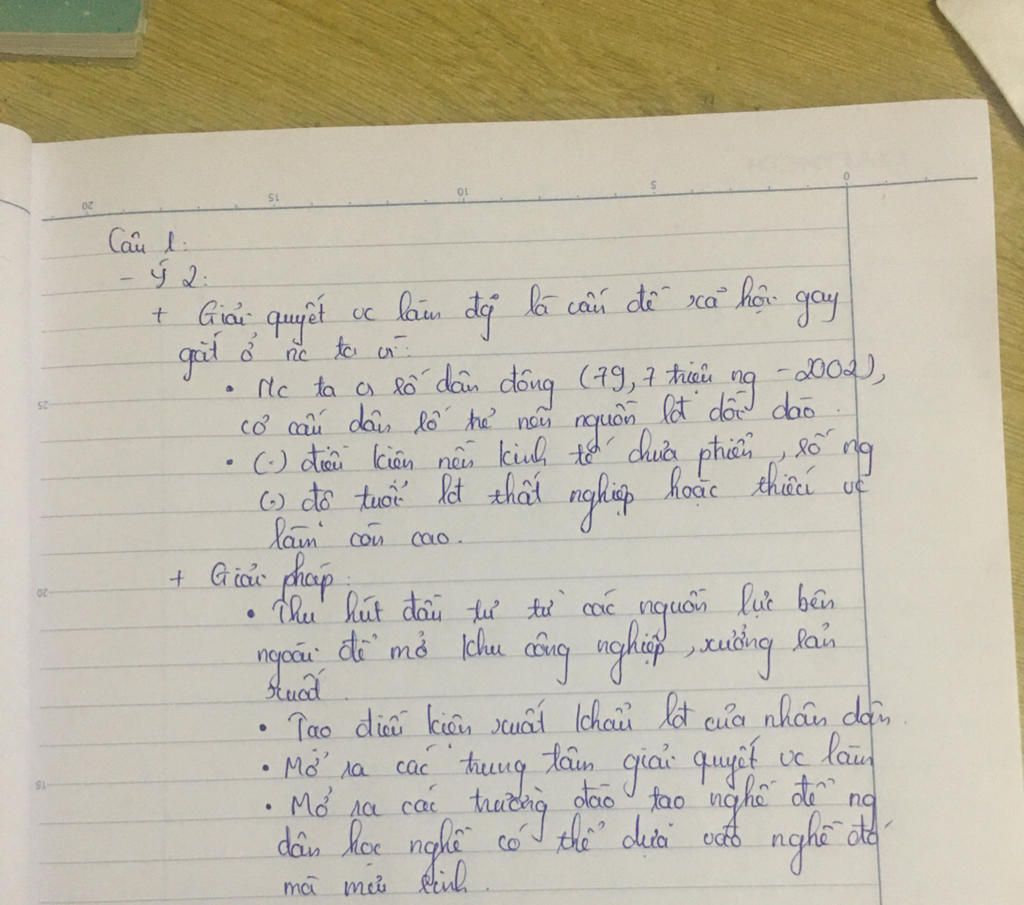 20 15 10 5 0
Câu 1:
- Ý 2:
+ Giải quyết vc làm đg là vấn đề xã hội gay
gắt ở nc ta vì:
• Nc ta có số dân đông (79,7 triệu ng - 2002),
cơ cấu dân số trẻ nên nguồn lđ dồi dào.
25
• (.) điều kiện nền kinh tế chưa phtriển, số ng
(.) độ tuổi lđ thất nghiệp hoặc thiếu vc
làm còn cao.
+ Giải pháp:
20
• Thu hút đầu tư từ các nguồn lực bên
ngoài để mở khu công nghiệp, xưởng sản
xuất.
• Tạo điều kiện xuất khẩu lđ của nhân dân.
• Mở ra các trung tâm giải quyết vc làm
15
• Mở ra các trường đào tạo nghề để ng
dân học nghề có thể dựa vào nghề đó
mà mưu sinh.